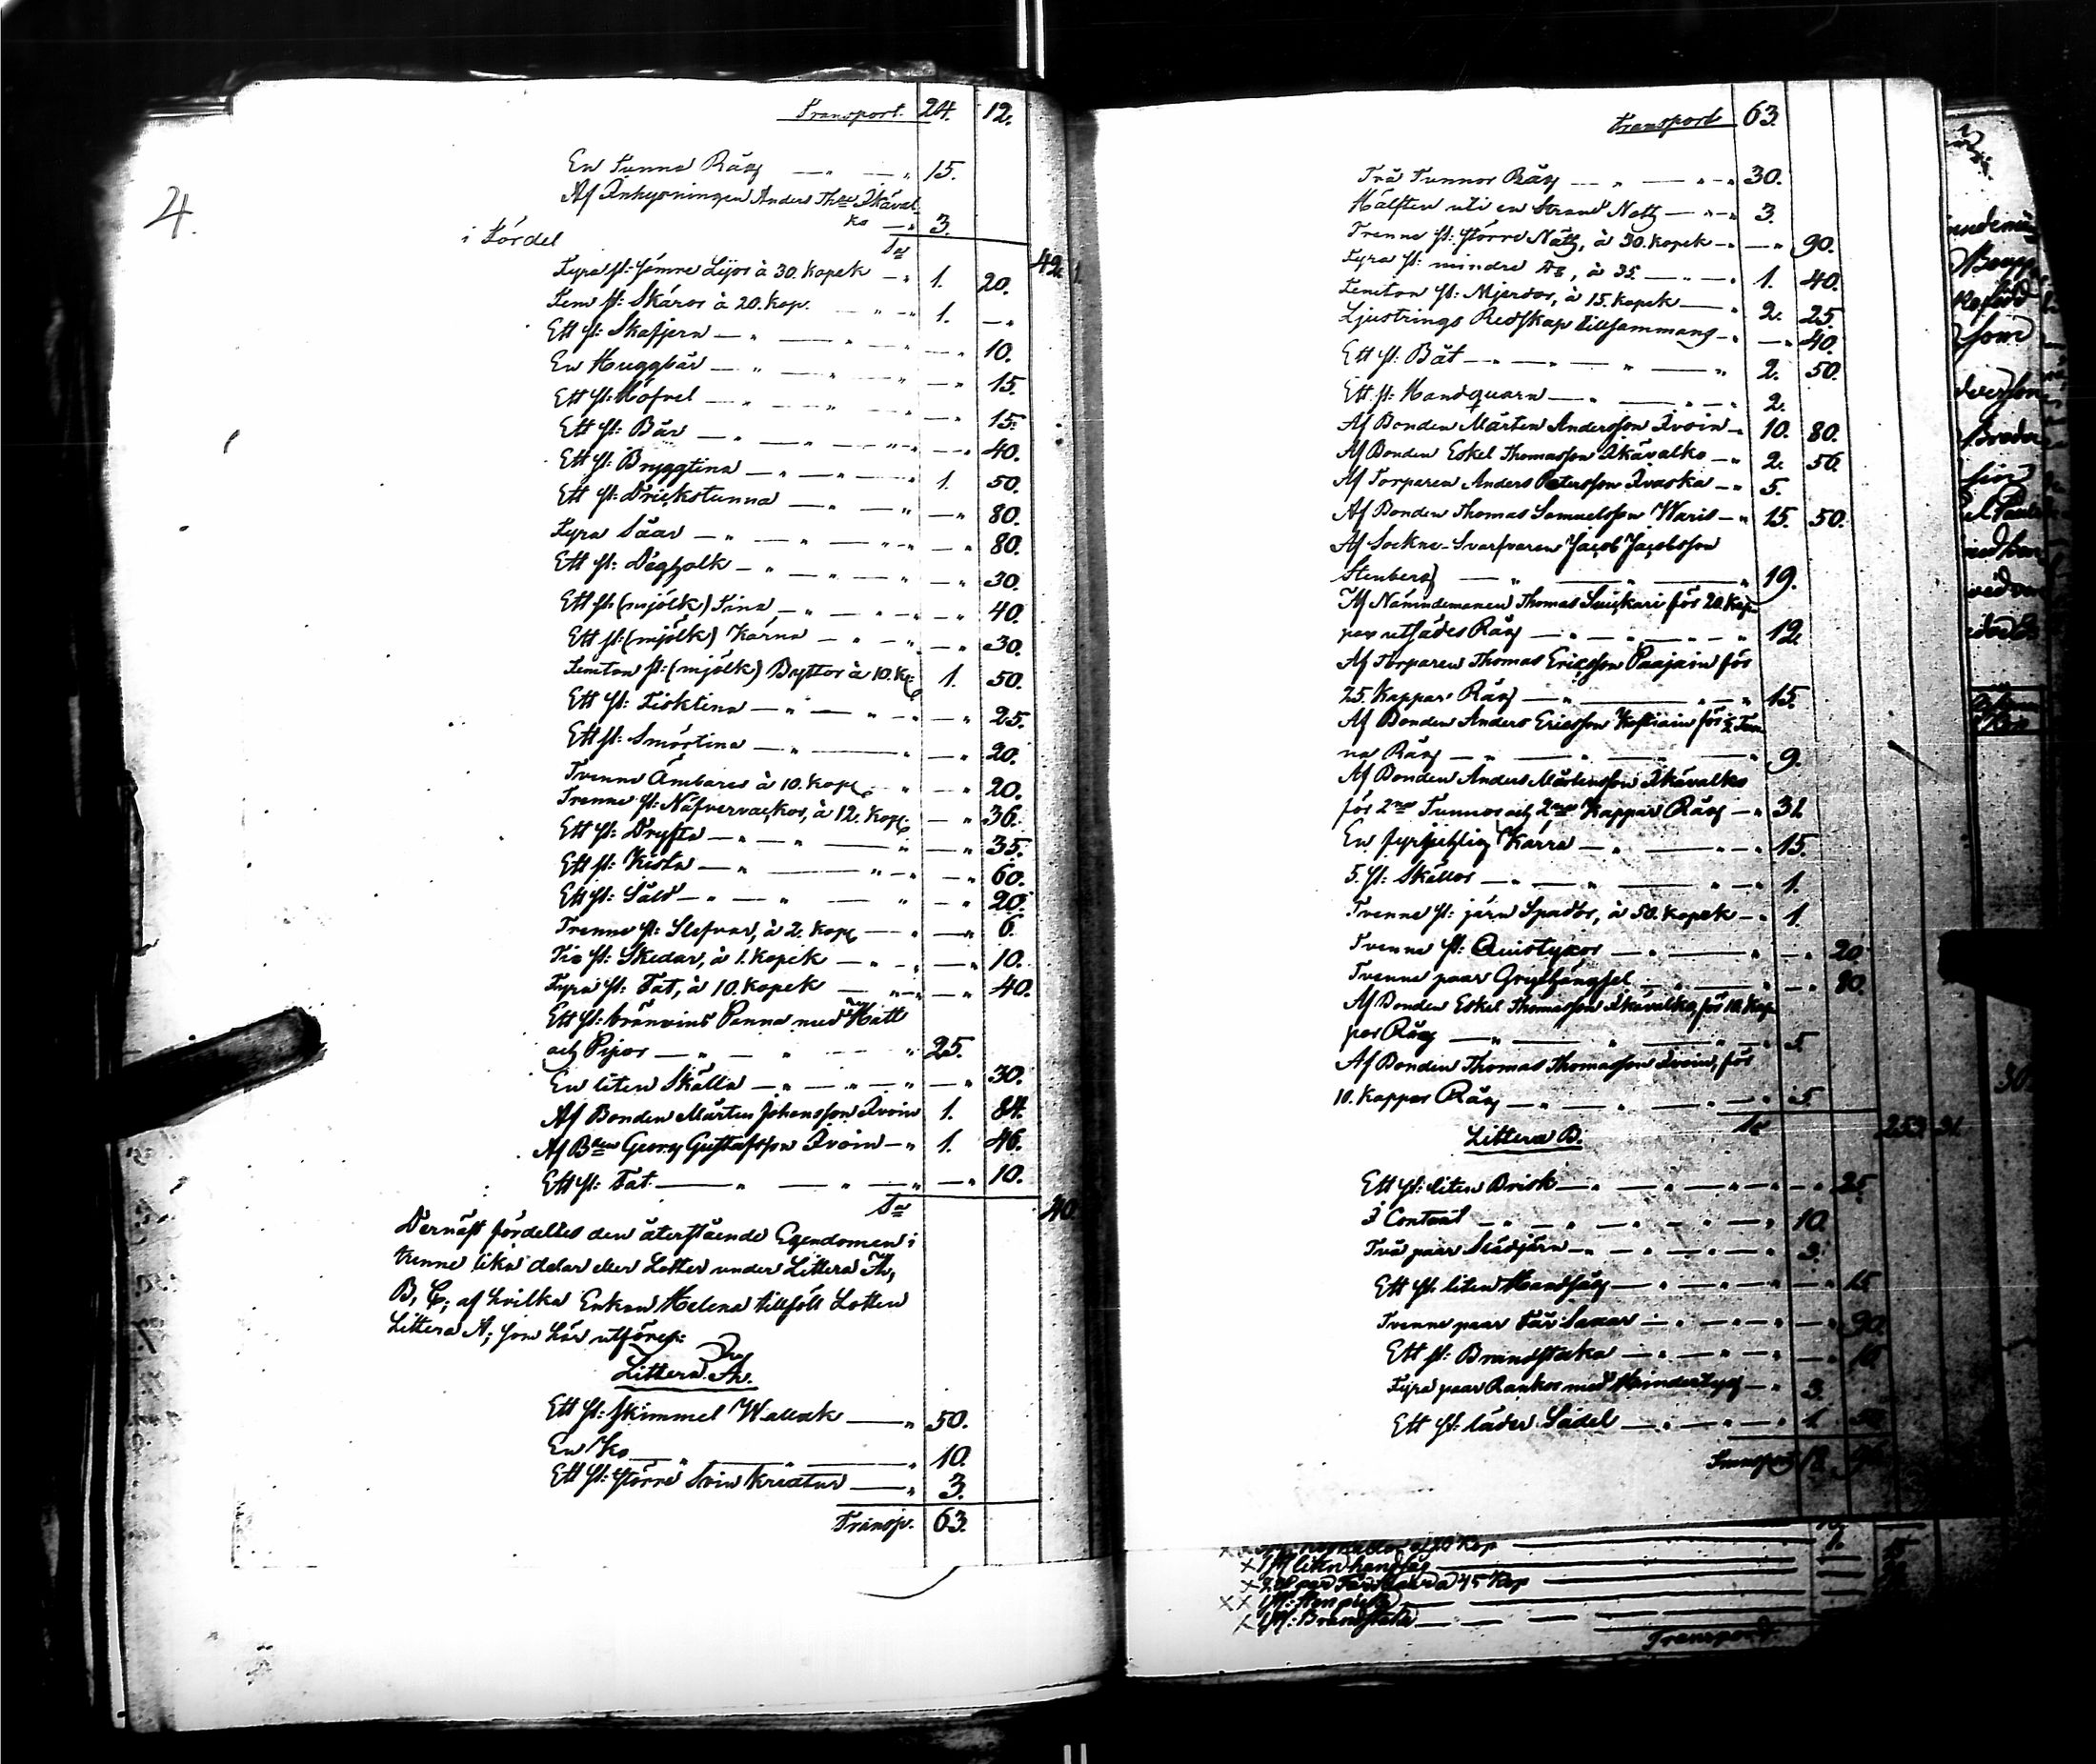 4.
Transport. 24. 12.
En Tunna Råg — " — " 15.
Af Inhysningen Anders Thssn Ikäval-
ko — " 3.
i Fördel Sa 42. 1.
Fyra st: sämre Lijor à 30. Kopek — " 1. 20.
Fem st: Skäror à 20. Kop. — " 1. — "
Ett st: Skafjern — " — " — " 10.
En Huggbår — " — " — " 15.
Ett st: Höfvel — " — " — " 15.
Ett st: Bår — " — " — " 40.
Ett st: Bryggtina — " — " — " 1. 50.
Ett st: Drickstunna — " — " — " 80.
Fyra Såar — " — " — " 80.
Ett st: Degholk — " — " — " 30.
Ett st: (mjölk) Tina — " — " — " 40.
Ett st: (mjölk) Kärna — " — " — " 30.
Femton st: (mjölk) Byttor à 10. Kp: 1. 50.
Ett st: Fisktina — " — " — " 25.
Ett st: Smörtina — " — " — " 20.
Tvenne Ämbares à 10. Kop: — " — " 20.
Trenne st: Näfverväskor, à 12. Kop: — " 36.
Ett st: Dryfta — " — " — " 35.
Ett st: Kista — " — " — " 60.
Ett st: Såld — " — " — " 20.
Trenne st: Slefvar, à 2. Kop: — " — " 6.
Tio st: Skedar, à 1. Kopek — " — " 10.
Fyra st: Fat, à 10. Kopek — " — " 40.
Ett st: brännvins Panna med Hatt
och Pipor — " — " — " 25.
En liten Skälla — " — " — " 30.
Af Bonden Mårten Johansson Ivoin 1. 84.
Af Bden Georg Gustafsson Ivoin — " 1. 46.
Ett st: Fat — " — " — " 10.
Sa 40.
Dernäst fördeltes den återstående Egendomen i
trenne lika delar eller Lotter under Littera A,
B, C; af hvilka Enkan Helena tillföll Lotten
Littera A; som här utföres:
Littera A.
Ett st: skimmel Wallack — " 50.
En Ko — " — " 10.
Ett st: större Svin Kreatur — " 3.
Transp. 63.
Transport 63.
Två Tunnor Råg — " — " 30.
Hälften uti en Strand Nott — " 3.
Trenne st: större Nät, à 30. Kopek — " — " 90.
Fyra st: mindre D:o, à 35 — " — " 1. 40.
Femton st: Mjerdor, à 15. Kopek — " 2. 25.
Ljustrings Redskap tillsammans — " — " 40.
Ett st: Båt — " — " — " 2. 50.
Ett st: Handquarn — " — " 2.
Af Bonden Mårten Andersson Ivoin — " 10. 80.
Af Bonden Eskel Thomasson Ikävalko — " 2. 56.
Af Torparen Anders Petersson Ivaska — " 5.
Af Bonden Thomas Samuelsson Waris — " 15. 50.
Af Sockne-Svarfvaren Jacob Jacobsson
Stenberg — " — " 19.
Af Nämndemannen Thomas Suikari för 20. Kap-
par utsädes Råg — " — " 12.
Af Torparen Thomas Ericsson Paajain för
25. Kappar Råg — " — " 15.
Af Bonden Anders Ericsson för ½ Tun-
na Råg — " — " 9.
Af Bonden Anders Mårtensson Ikävalko
för 2ne Tunnor och 2ne Kappar Råg — " 31.
En fyrhjulig Kärra — " — " 15.
5. st: Skällor — " — " 1.
Tvenne st: järn Spador, à 50. Kopek — " 1.
Tvenne st: Quistyxor — " — " 20.
Tvenne paar Grythängsel — " — " 80.
Af Bonden Eskel Thomasson Ikävalko, för 10. Kap-
par Råg — " — " 5.
Af Bonden Thomas Thomasson Ivoin, för
10. Kappar Råg — " — " 5.
Sa 253. 31.
Littera B.
Ett st: liten Brisk — " — " 25.
i Contant — " — " 10.
Två paar Slädjärn — " — " 3.
Ett st: liten Handsåg — " — " 15.
Tvenne paar Får Saxar — " — " 90.
Ett st: Brandstaka — " — " 16.
Fyra paar Rankor med — " 3.
Ett st: läder Sadel — " — " 1. 50.
Transport 18. 96.
à 20 Kop
x 1 st liten handsåg
x 2 par Får Saxar à 45 Kop
x 1 st: Brandstake
Transport